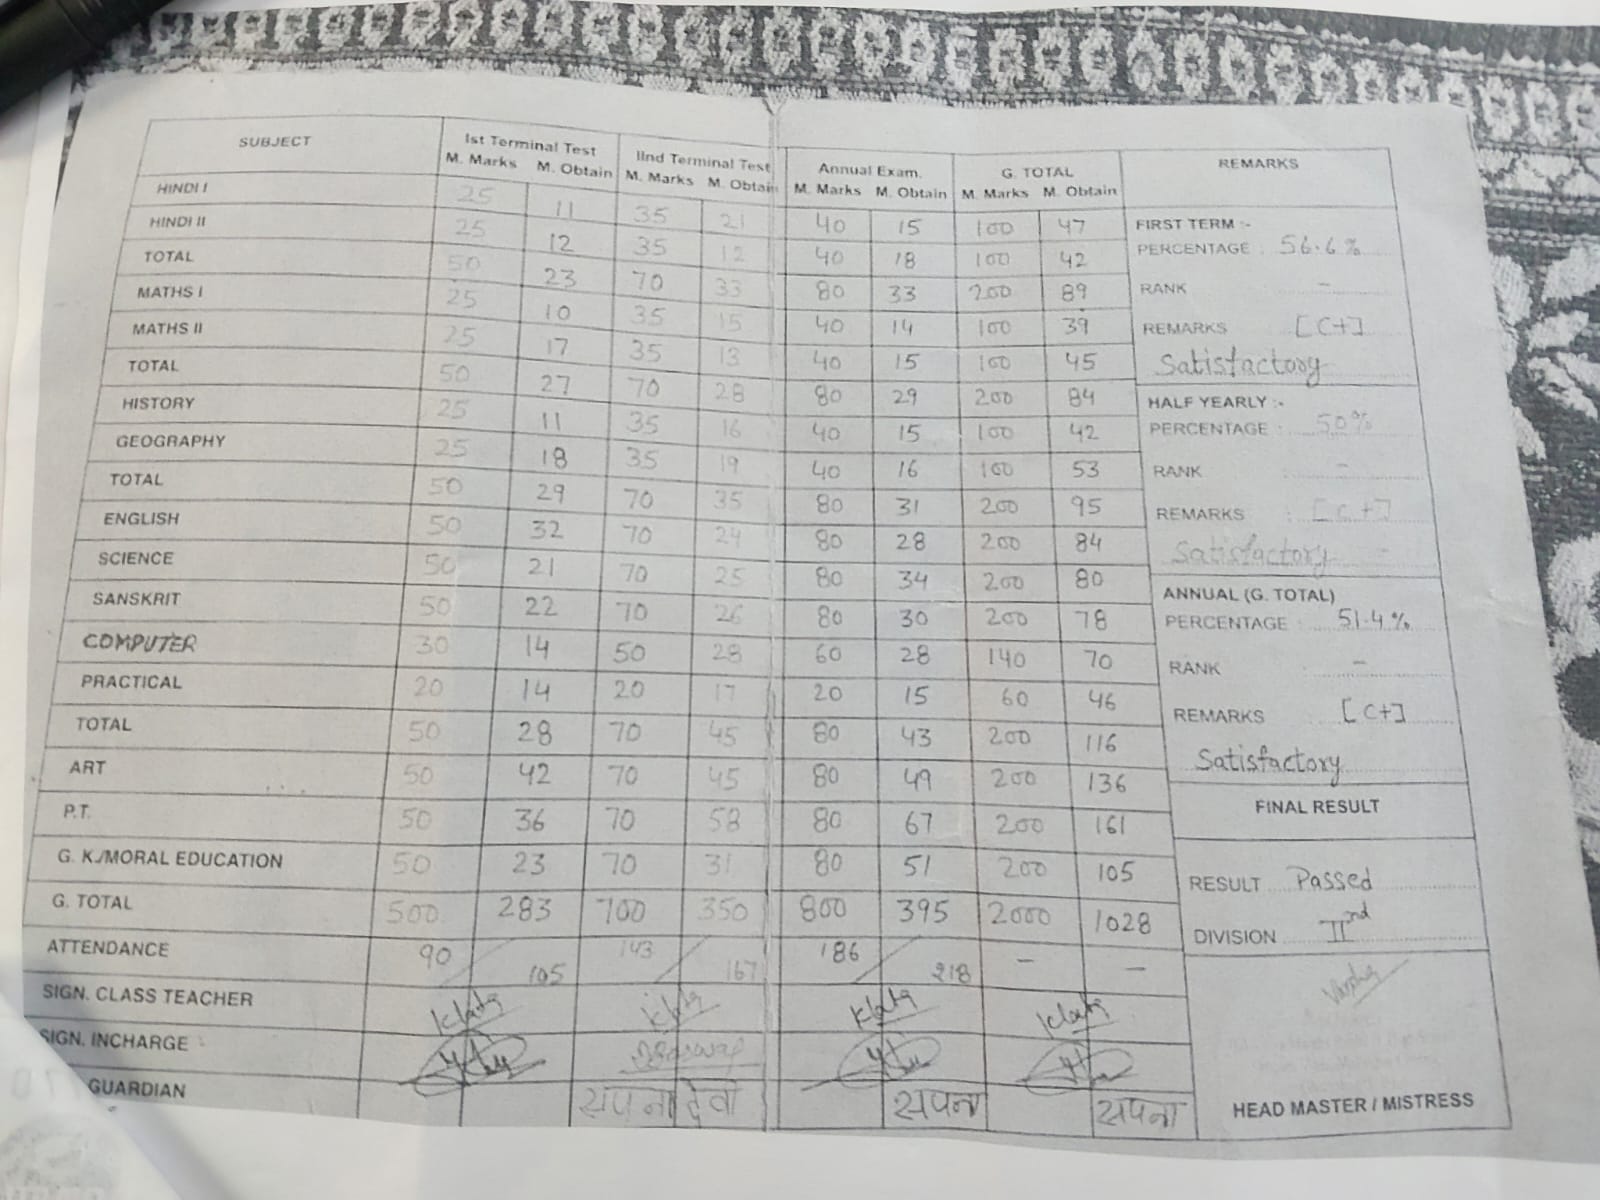 SUBJECT Ist Terminal Test IInd Terminal Test Annual Exam. G. TOTAL REMARKS
M. Marks M. Obtain M. Marks M. Obtain M. Marks M. Obtain M. Marks M. Obtain
HINDI I 25 11 35 21 40 15 100 47 FIRST TERM :-
HINDI II 25 12 35 12 40 18 100 42 PERCENTAGE : 56.6%
TOTAL 50 23 70 33 80 33 200 89 RANK -
MATHS I 25 10 35 15 40 14 100 39 REMARKS [C+]
MATHS II 25 17 35 13 40 15 100 45 Satisfactory
TOTAL 50 27 70 28 80 29 200 84 HALF YEARLY :-
HISTORY 25 11 35 16 40 15 100 42 PERCENTAGE : 50%
GEOGRAPHY 25 18 35 19 40 16 100 53 RANK -
TOTAL 50 29 70 35 80 31 200 95 REMARKS : [C+]
ENGLISH 50 32 70 24 80 28 200 84 Satisfactory
SCIENCE 50 21 70 25 80 34 200 80 ANNUAL (G. TOTAL)
SANSKRIT 50 22 70 26 80 30 200 78 PERCENTAGE : 51.4%
COMPUTER 30 14 50 28 60 28 140 70 RANK -
PRACTICAL 20 14 20 17 20 15 60 46 REMARKS [C+]
TOTAL 50 28 70 45 80 43 200 116 Satisfactory
ART 50 42 70 45 80 49 200 136 FINAL RESULT
P.T. 50 36 70 58 80 67 200 161
G. K./MORAL EDUCATION 50 23 70 31 80 51 200 105 RESULT Passed
G. TOTAL 500 283 700 350 800 395 2000 1028 DIVISION IInd
ATTENDANCE 90/105 143/167 186/218 - -
SIGN. CLASS TEACHER
SIGN. INCHARGE
GUARDIAN सपना देवी सपना सपना HEAD MASTER / MISTRESS